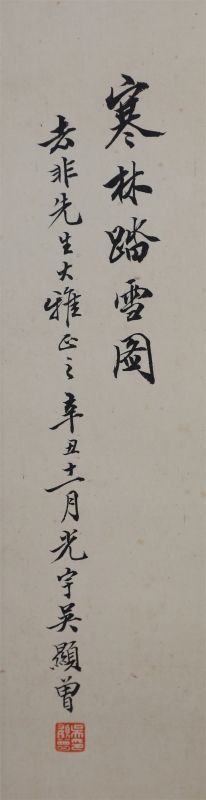 寒林踏雪圖
老非先生大雅正之辛丑十一月光宇吳顯曾